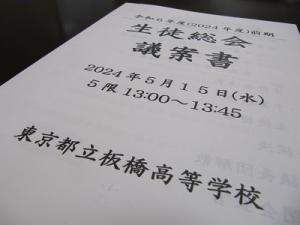 令和6年度(2024年度)前期
生徒総会
議案書
2024年5月15日(水)
5限 13:00～13:45
東京都立板橋高等学校